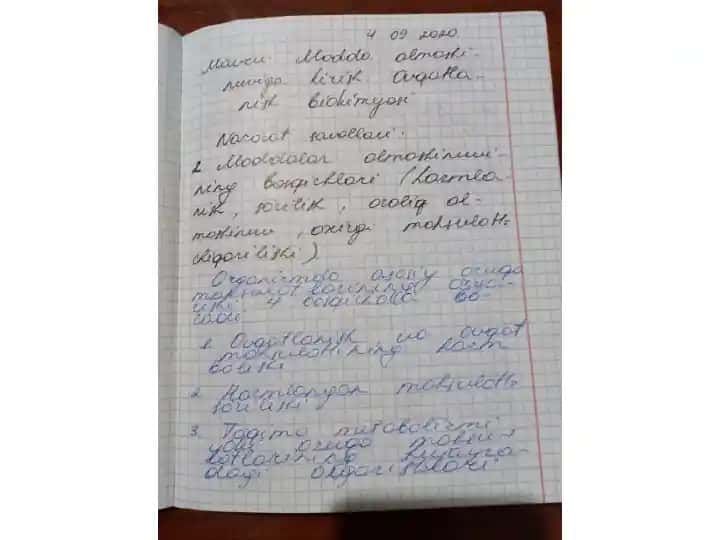 4 09 2020.
Mavzu: Modda almashi-
nuviga kirish Ovqatla-
nish biokimyosi
Nazorat savollari.
1. Moddalar almashinuvi-
ning bosqichlari (hazmla-
nish, so'rilish, oraliq al-
mashinuv, oxirgi mahsulotl.
chiqarilishi)
Organizmda asosiy oziqa
mahsulotlarining
4 bosqichda bo-
ladi
1. Ovqatlanish va ovqat
mahsulotining hazm
bolishi
2. Hazmlangan mahsulotl.
sorilishi
3. Toqima metabolizmi
yoki oziqa mahsu-
lotlarining hujayra-
dagi ozgarishlari